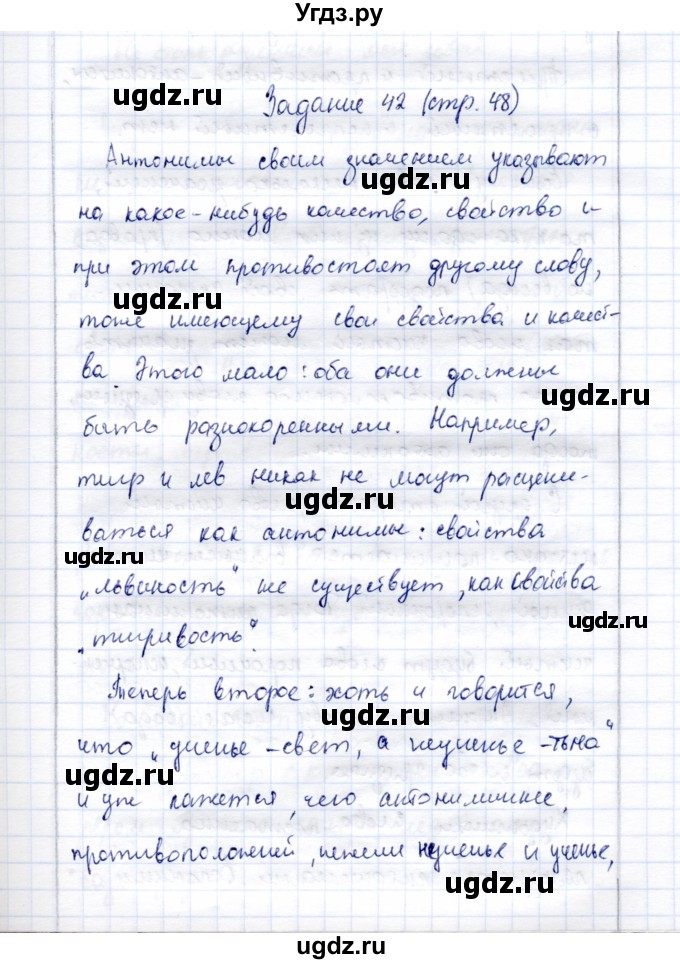 Угдз.ру
Задание 42 (стр. 48)
Антонимы своим значением указывают
на какое-нибудь качество, свойство и
при этом противостоят другому слову,
тоже имеющему свои свойства и качест-
ва. Этого мало: оба они должны
быть разнокоренными. Например,
тигр и лев никак не могут расцени-
ваться как антонимы: свойства
„львиность" не существует, как свойства
„тигривость".
Теперь второе: хоть и говорится,
что „ученье - свет, а неученье - тьма"
и уж кажется, чего антонимичнее,
противоположней, нежели неученье и ученье,
ugdz.ru
ugdz.ru
ugdz.ru
ugdz.ru
ugdz.ru
ugdz.ru
ugdz.ru
ugdz.ru
ugdz.ru
ugdz.ru
ugdz.ru